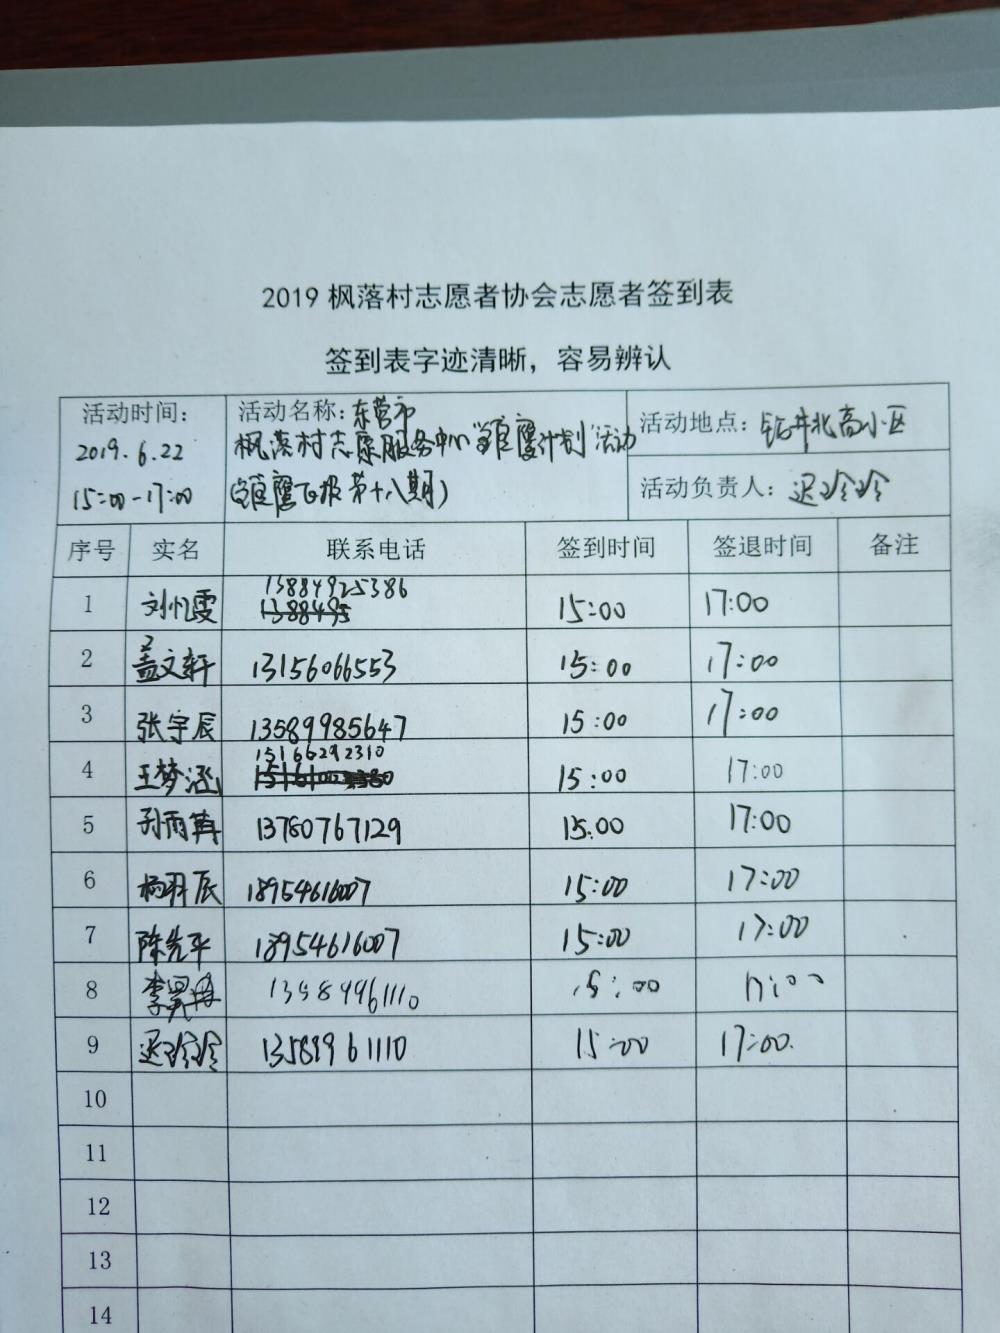 2019 枫落村志愿者协会志愿者签到表
签到表字迹清晰，容易辨认
活动时间：
2019.6.22
15:00-17:00
活动名称：东营市
枫落村志愿服务中心“雏鹰计划”活动
(雏鹰飞报第十八期)
活动地点：钻井北高小区
活动负责人：迟玲玲
序号 实名 联系电话 签到时间 签退时间 备注
1 刘忆雯 13884925386 15:00 17:00
2 盖文轩 13156066553 15:00 17:00
3 张宇辰 13589985647 15:00 17:00
4 王梦涵 15166292310 15:00 17:00
5 孙雨冉 13780767129 15:00 17:00
6 杨羽辰 18954616007 15:00 17:00
7 陈先平 18954616007 15:00 17:00
8 李昊冉 13589961110 15:00 17:00
9 迟玲玲 13589961110 15:00 17:00
10
11
12
13
14